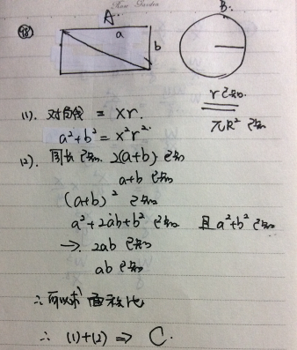 A.
B.
a
b
r已知
πR² 已知
(1). 对角线 = xr.
a²+b²=x²r².
(2). 周长已知. 2(a+b) 已知
a+b 已知
(a+b)² 已知
a²+2ab+b² 已知 且 a²+b² 已知
→ 2ab 已知
ab 已知
∴ 可以求 面积比
∴ (1)+(2) ⇒ C.